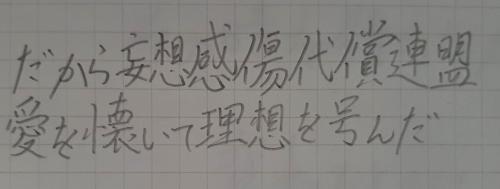 だから妄想感傷代償連盟
愛を懐いて理想を号んだ